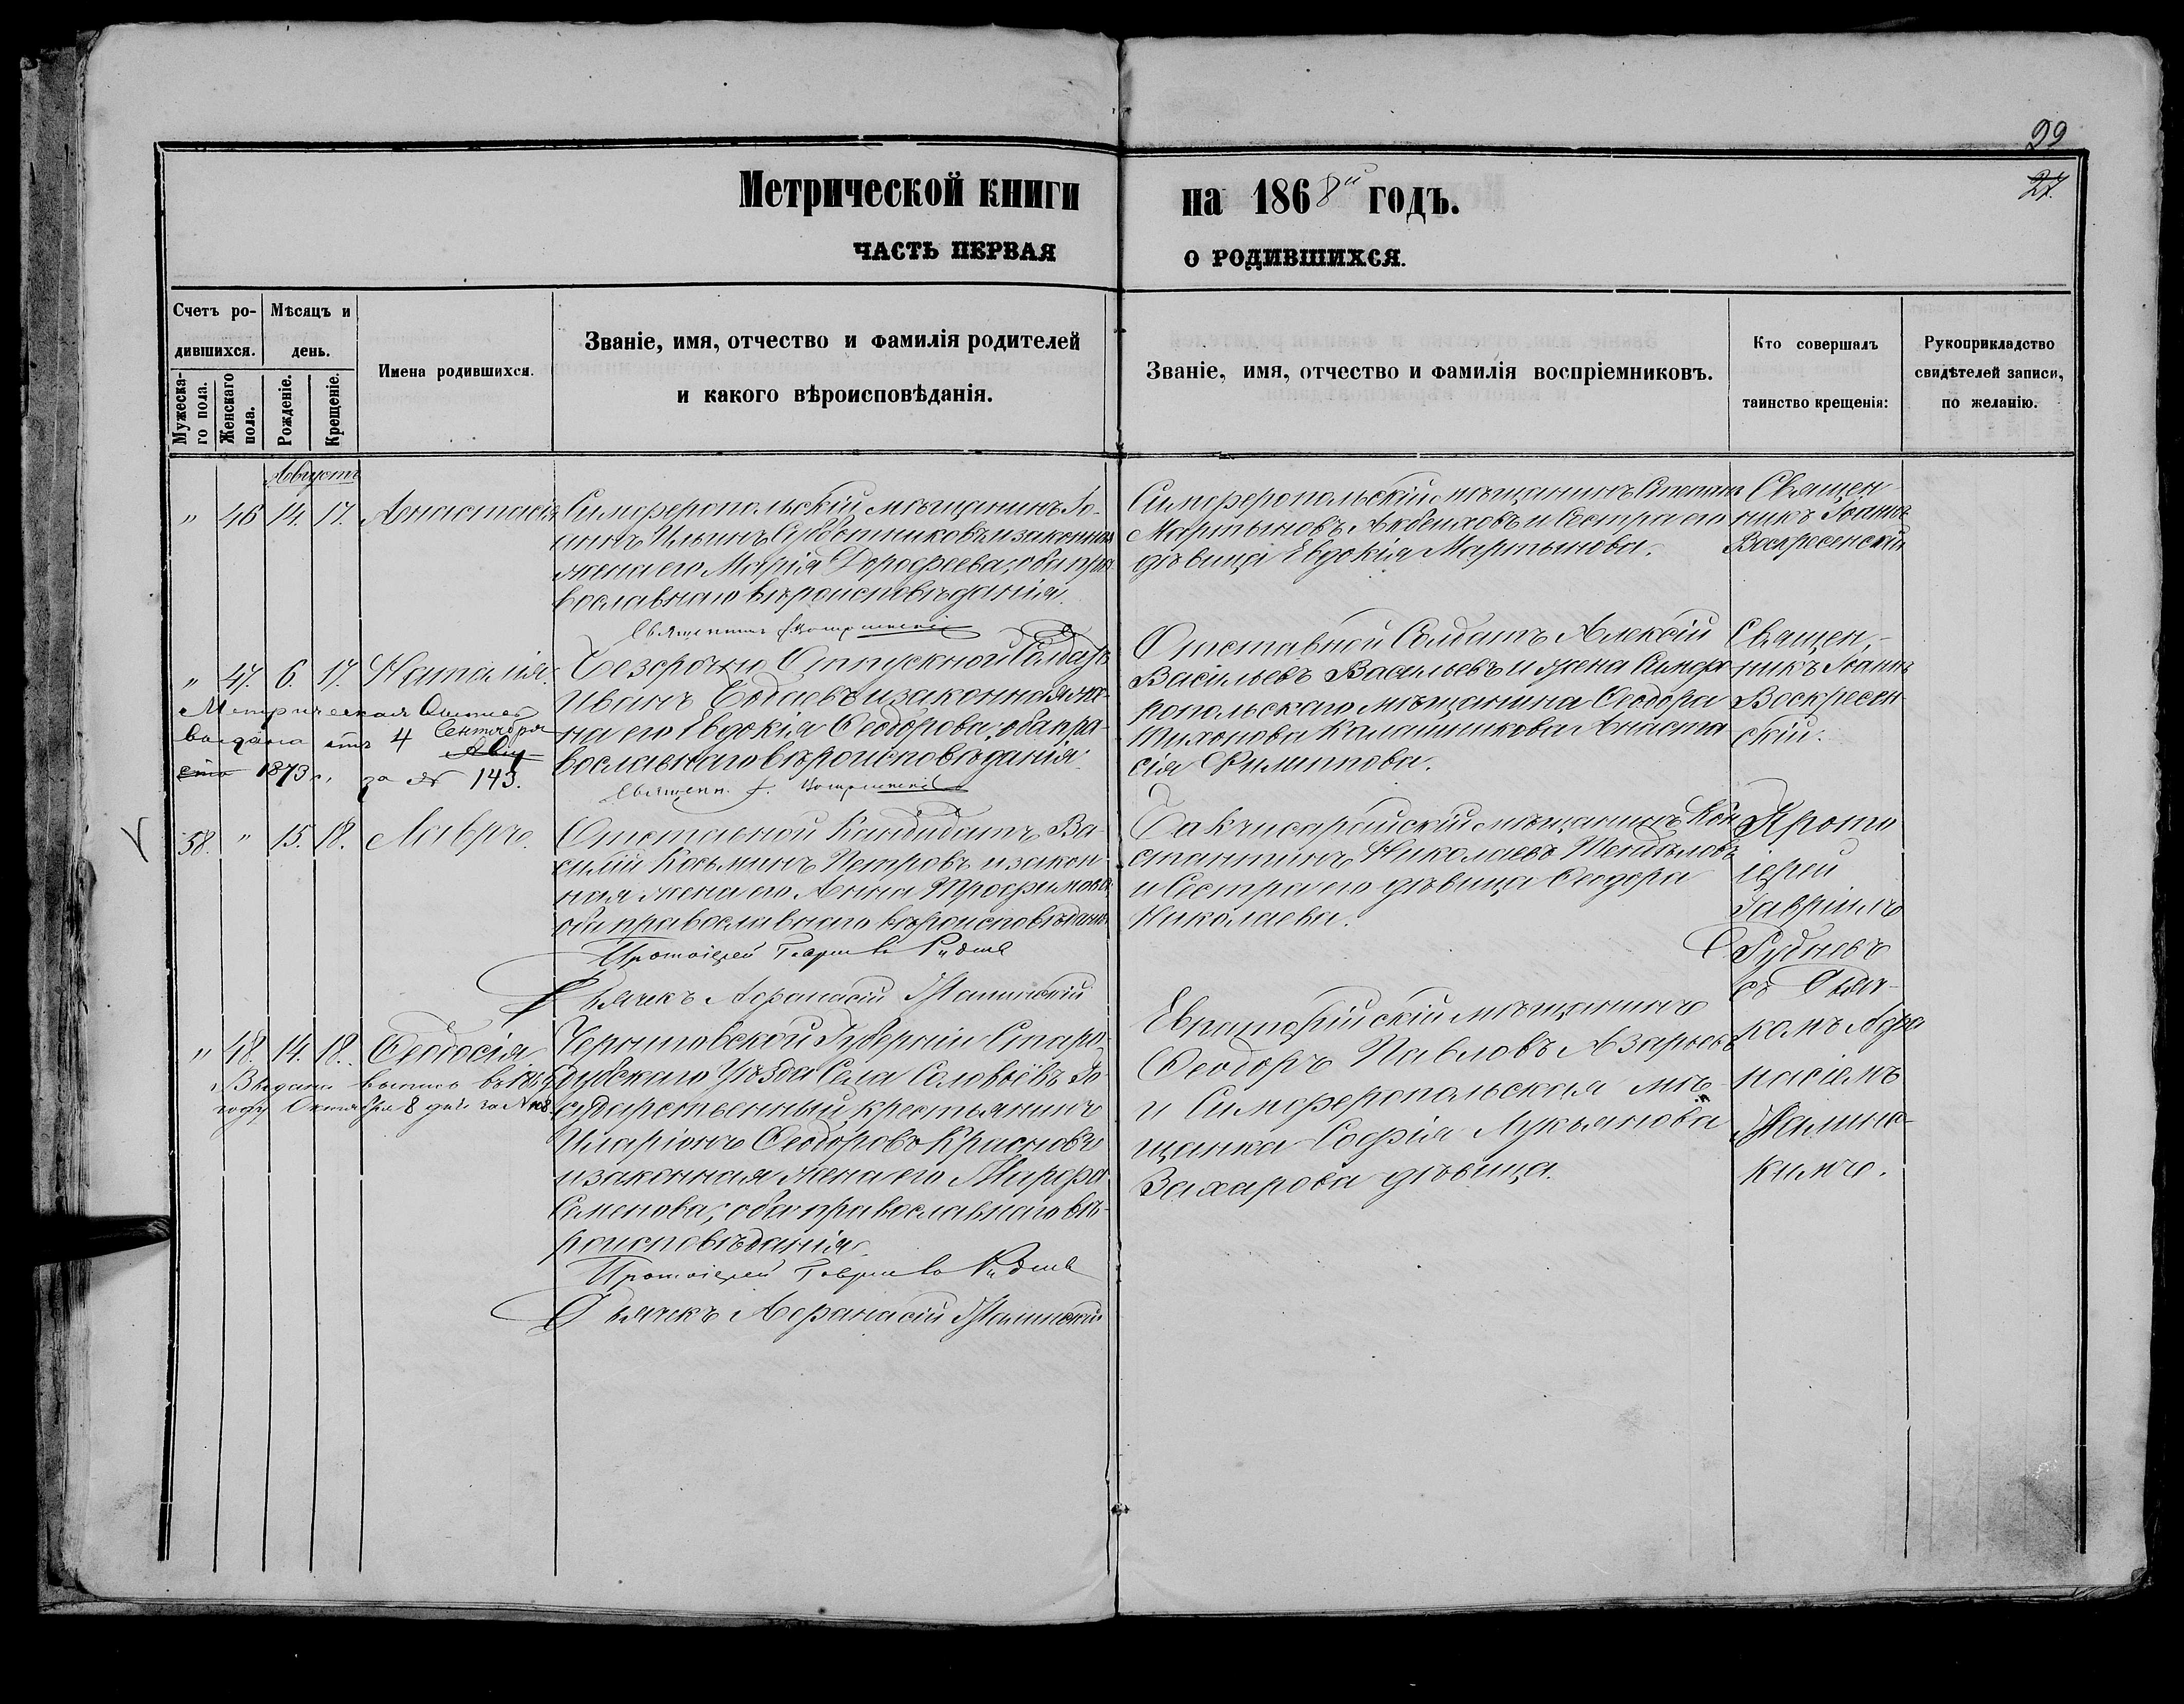 29
27.
Метрической книги на 1868й годъ.
ЧАСТЬ ПЕРВАЯ О РОДИВШИХСЯ.
Счетъ ро-
дившихся.
Мужеска-
го пола.
Женскаго
пола.
Мѣсяцъ и
день.
Рожденіе.
Крещеніе.
Имена родившихся.
Званіе, имя, отчество и фамилія родителей
и какого вѣроисповѣданія.
Званіе, имя, отчество и фамилія воспріемниковъ.
Кто совершалъ
таинство крещенія:
Рукоприкладство
свидѣтелей записи,
по желанію.
Августъ
" 46 14. 17. Анастасія
Симферопольскій мѣщанинъ Іо-
аннъ Ильинъ Субботниковъ и законная
жена его Марія Дорофеева; оба пра-
вославнаго вѣроисповѣданія.
Священникъ
Симферопольскій мѣщанинъ Степанъ
Мартыновъ и Сестра его
дѣвица Евдокія Мартынова.
Священ
никъ Іоаннъ
Воскресенскій
" 47. 6. 17. Наталія.
Метрическая
выдана отъ 4 Сентября
Авгу
ста 1873 г. за № 143.
Безсрочно Отпускной Солдатъ
Иванъ и законная же-
на его Евдокія Ѳеодорова; оба пра-
вославнаго вѣроисповѣданія.
Священн.
Отставной Солдатъ Алексій
Васильевъ Васильевъ и жена Симфе
ропольскаго мѣщанина Ѳеодора
Тихонова Калашникова Анаста
сія Филиппова.
Священ-
никъ Іоаннъ
Воскресен-
скій.
38. " 15. 18. Лавръ.
Отставной Кандидатъ Ва-
силій Косьминъ Петровъ и закон
ная жена его Анна Трофимова
оба православнаго вѣроисповѣданія
Протоіерей Гавріилъ Рудневъ
Дьячекъ Афанасій Малинскій
Бакчисарайскій мѣщанинъ Кон
стантинъ Николаевъ
и Сестра его дѣвица Ѳеодора
Николаева.
Прото
іерей
Гавріилъ
Рудневъ
съ Дьяч-
комъ Афа
насіемъ
Малинс-
кимъ.
" 48. 14. 18. Ѳеодосія
Выдана выпись въ
году Октября 8 дня за № 108.
Черниговской Губерніи Старо-
дубскаго Уѣзда Села Соловьевъ Го-
сударственный крестьянинъ
Иларіонъ Ѳеодоровъ Красновъ
и законная жена его Марфа
Семенова; оба православнаго вѣ-
роисповѣданія.
Протоіерей Гавріилъ Рудневъ
Дьячекъ Афанасій Малинскій
Евпаторійскій мѣщанинъ
Ѳеодоръ Павловъ Азарьевъ
и Симферопольская мѣ-
щанка Софія Лукьянова
Захарова дѣвица.